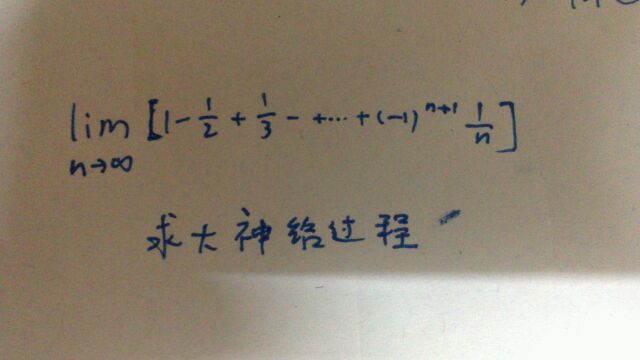 lim [1-1/2+1/3-+···+(-1)^{n+1} 1/n]
n→∞
求大神给过程